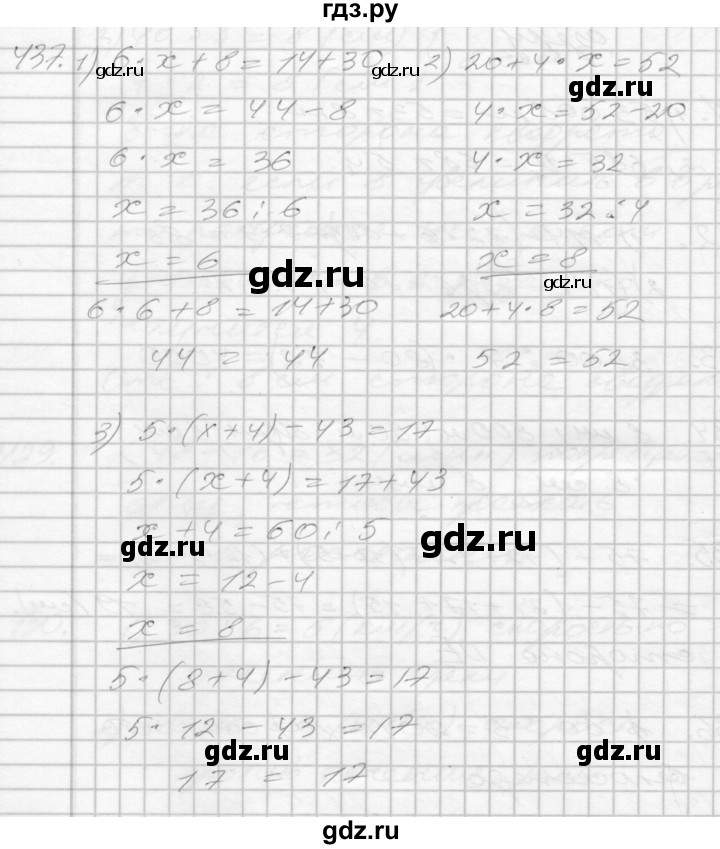 гдз.ру
437. 1) 6 · x + 8 = 14 + 30
6 · x = 44 - 8
6 · x = 36
x = 36 : 6
x = 6
6 · 6 + 8 = 14 + 30
44 = 44
2) 20 + 4 · x = 52
4 · x = 52 - 20
4 · x = 32
x = 32 : 4
x = 8
20 + 4 · 8 = 52
52 = 52
3) 5 · (x + 4) - 43 = 17
5 · (x + 4) = 17 + 43
x + 4 = 60 : 5
x = 12 - 4
x = 8
5 · (8 + 4) - 43 = 17
5 · 12 - 43 = 17
17 = 17
gdz.ru
gdz.ru
gdz.ru
gdz.ru
gdz.ru
gdz.ru
gdz.ru
gdz.ru
gdz.ru
gdz.ru